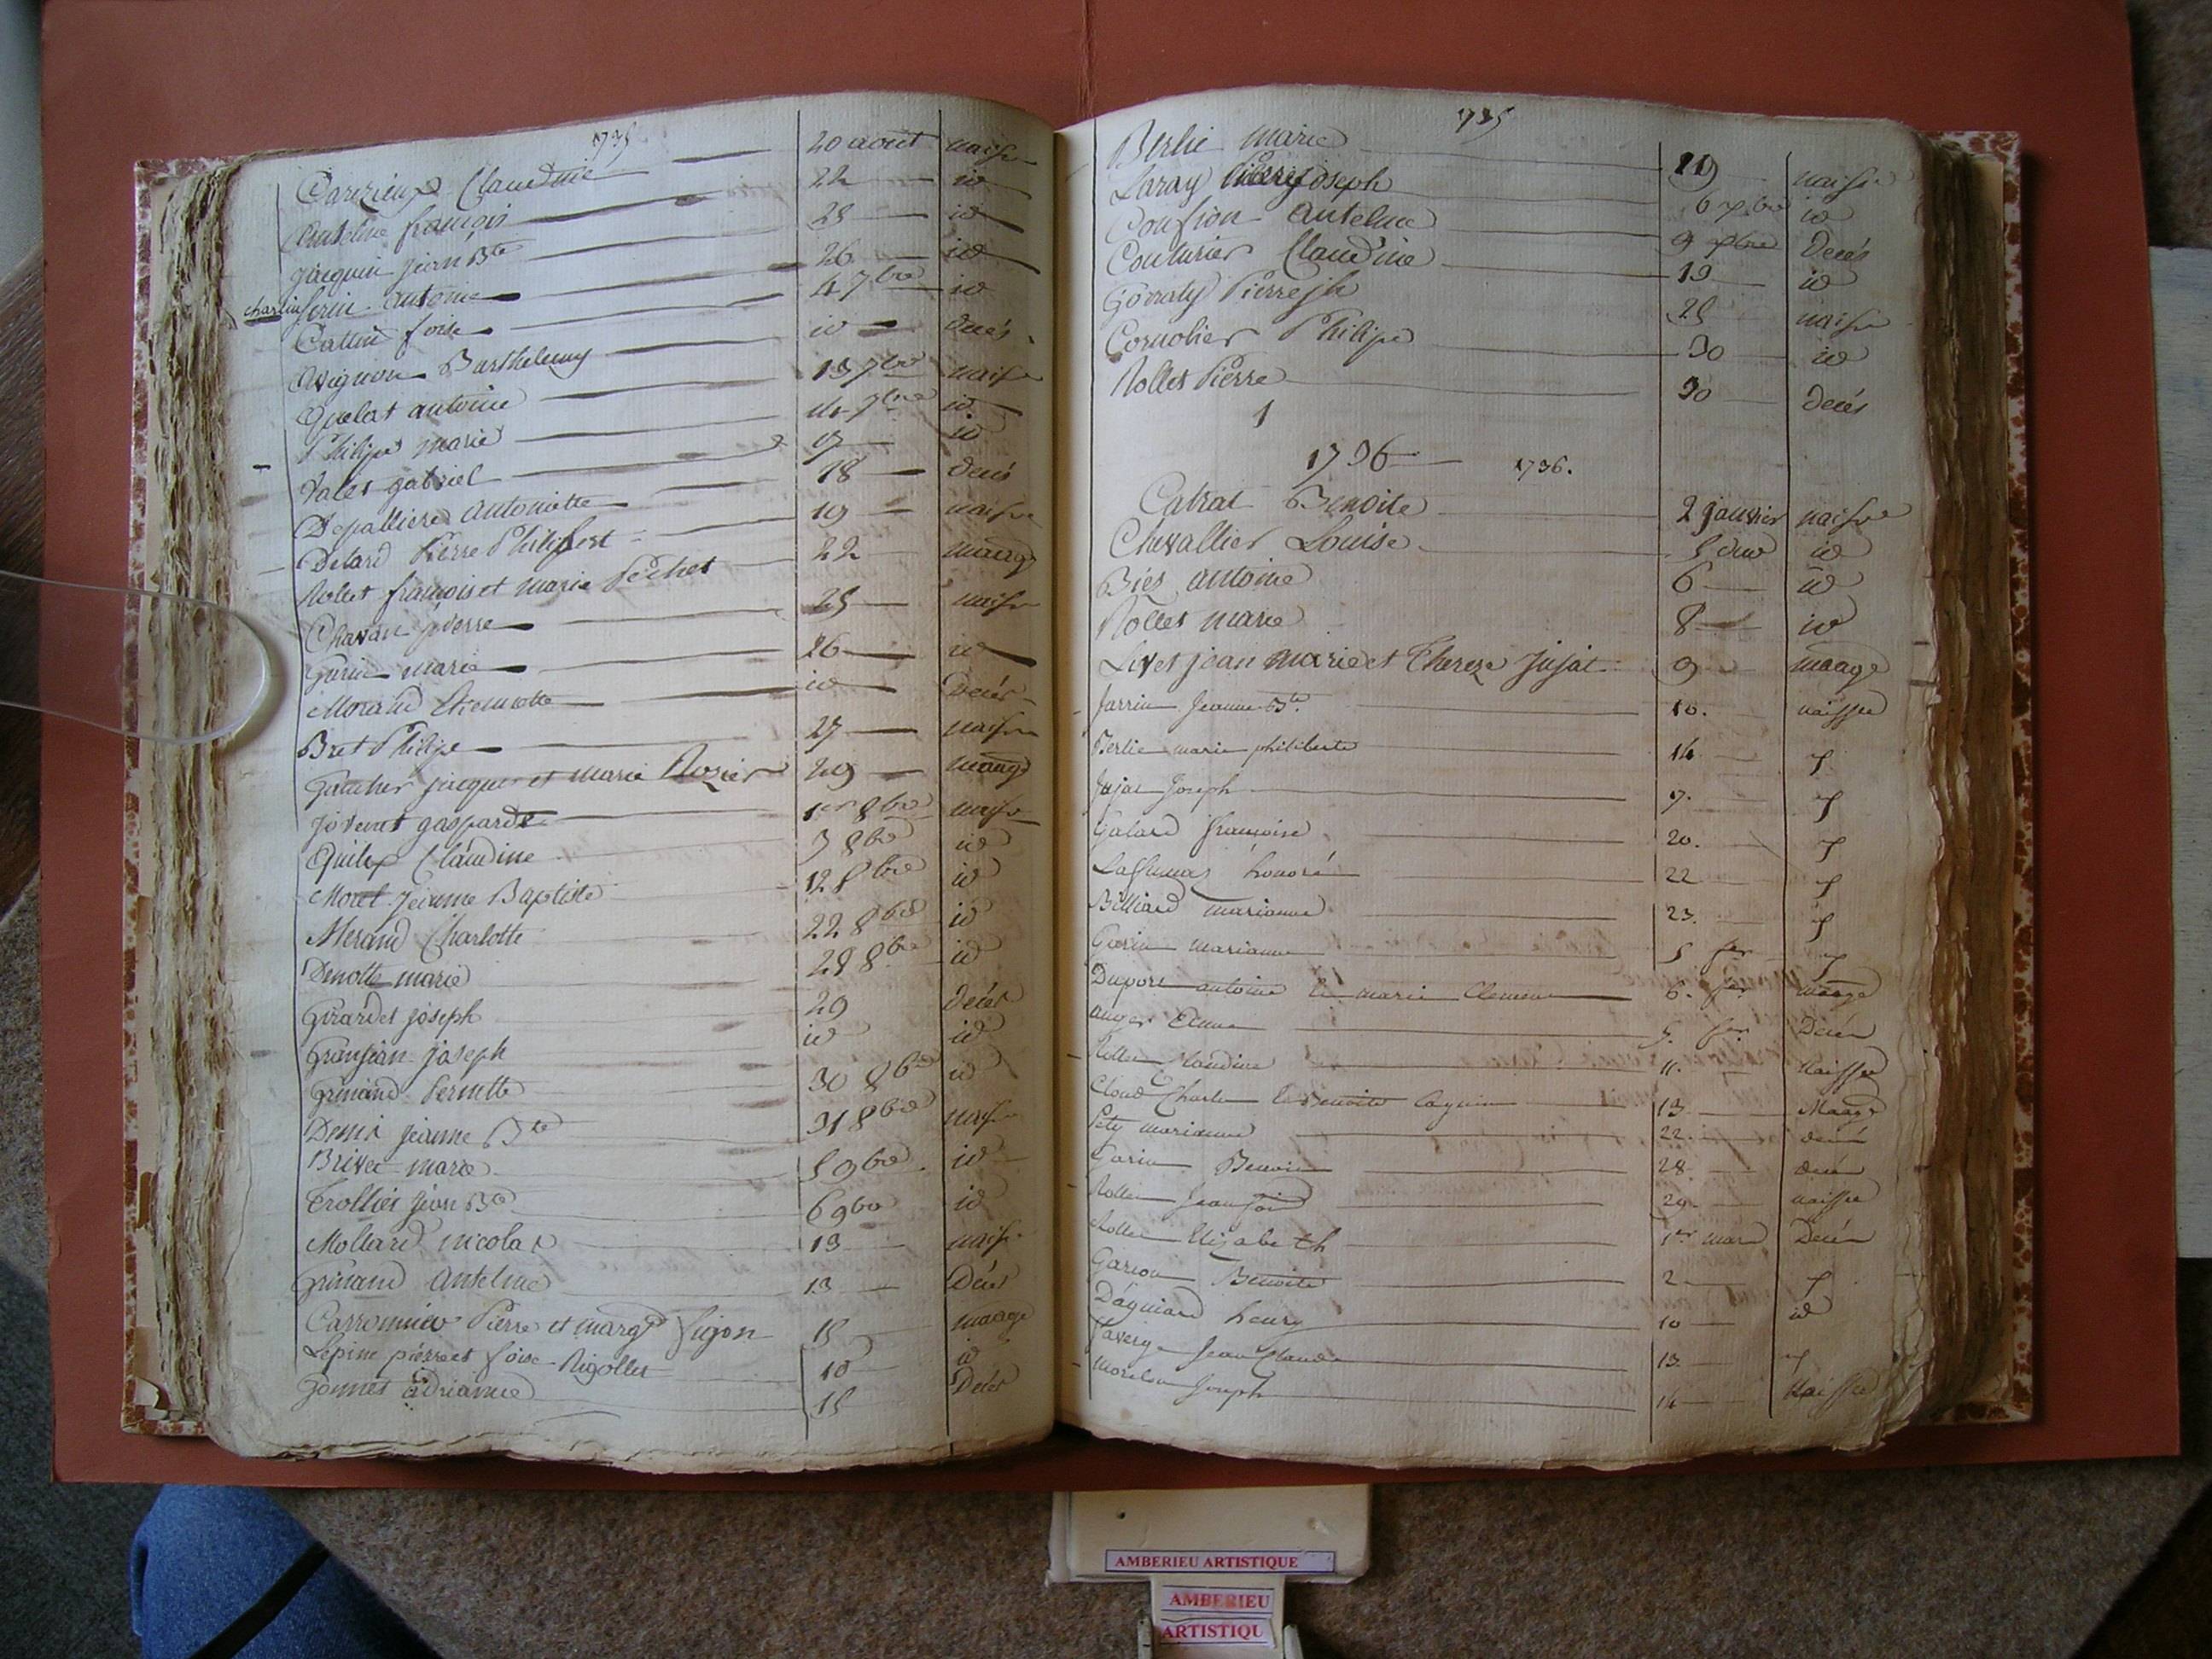 1735
Carezieux Claudine 20 aout naisse
Anteline françois 22 id
Jacquin jean Bte 25 id
charlin Serin antoine 26 id
Cattin foise 4 7bre id
Vignon Barthelemy id decés
Quelat antoine 13 7bre naisse
Philipe marie 14 7bre id
Valet gabriel 17 id
Depalliere Antoinette 18 decés
Delard Pierre Philibert 19 naisse
Rollet francois et marie Pechet 22 maage
Chavan pierre 25 naisse
Garin marie 26 id
Morand Etiennette id decés
Bret Philipe 27 naisse
Gaucher jacques et marie Rozier 29 maage
Jovenet gasparde 1er 8bre naisse
Quilix Claudine 3 8bre id
Morel jeanne Baptiste 12 8bre id
Merand Charlotte 22 8bre id
Denotte marie 28 8bre id
Girardet joseph 29 decés
Gransjean joseph id id
Grinand Pernette 30 8bre id
Denis jeanne Bte 31 8bre naisse
Brivet marie 5 9bre id
Trollier jean Bte 6 9bre id
Mollard nicolas 13 naisse
Grinand Antelme 13 Decés
Carronnier Pierre et margte Sigon 15 maage
Lepine pierre et foise Rigollet 10 id
Gonnet adrianne 15 Decés
1735
Berlie marie 29 naisse
Laray joseph 6 xbre id
Confion Antelme 9 xbre Decés
Couturier Claudine 19 id
Gorraty Pierre jh 25 naisse
Cornolier Philipe 30 id
Rollet Pierre 30 decés
1
1736 1736.
Catrat Benoite 2 janvier naisse
Chevallier Louise 5 dud id
Biés antoine 6 id
Rollet marie 8 id
Livet jean marie et Thereze Jujat 9 maage
Jarrin Jeanne Bte 10. naissce
Berlie marie philiberte 14
Jujat Joseph 17.
Galard francoise 20.
honoré 22
Billiard marianne 23.
Garin marianne 5 fer
Duport antoine & marie Clemen 6. fer maage
auger 5. fer Decés
Rollet Claudine 11. Naissce
Cloud Charle & Benoite Coguin 13. Maage
Pety marianne 22. decés
Garin Benoit 28 decés
Rollet Jean 29 naisse
Rollet Elizabeth 1er mars Decés
Garron Benoite 2
Daguiard henry 10 id
Taverge Jean Claude 13.
Morelon Joseph 14 Naissce
AMBERIEU ARTISTIQUE
AMBERIEU
ARTISTIQU